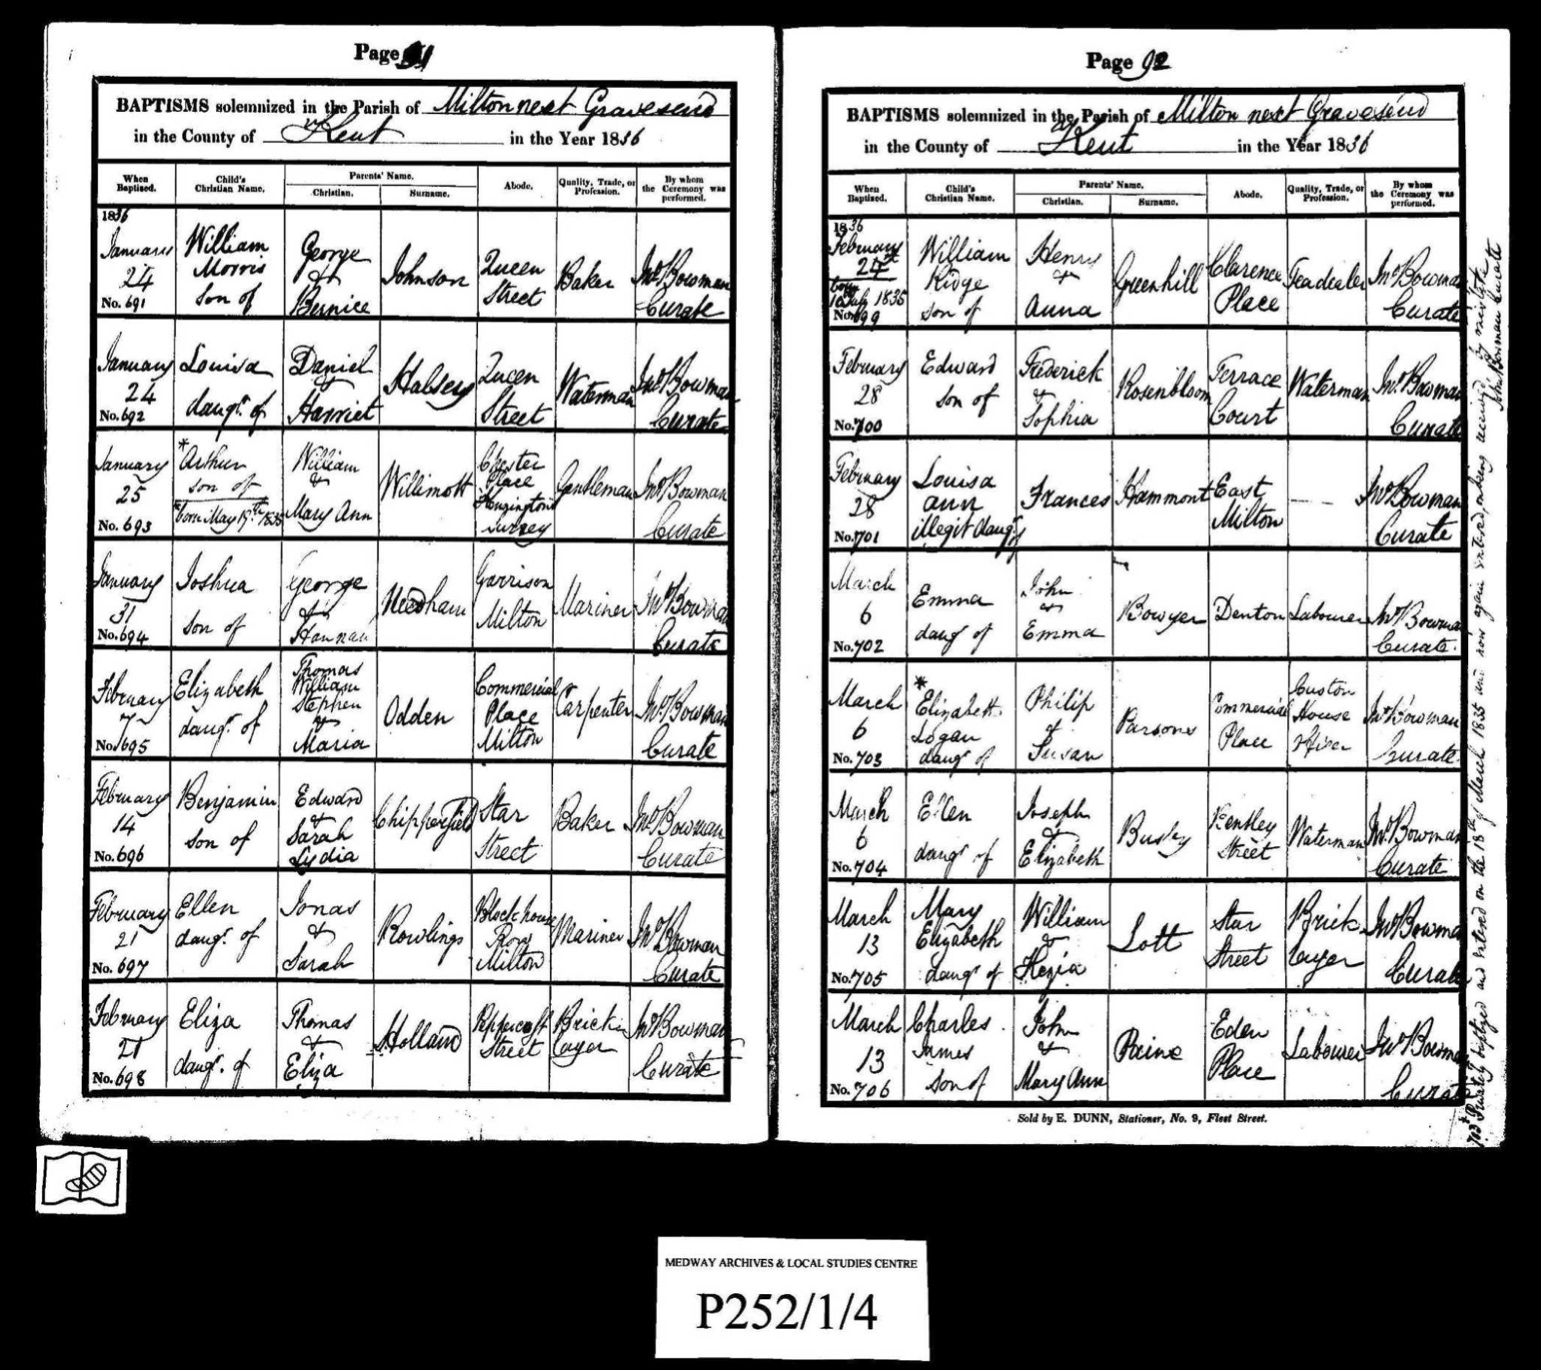 Page 91
BAPTISMS solemnized in the Parish of Milton next Gravesend
in the County of Kent in the Year 1836
When Baptized. Child's Christian Name. Parents' Name. Abode. Quality, Trade, or Profession. By whom the Ceremony was performed.
Christian. Surname.
1836
January 24 No. 691 William Morris son of George & Bernice Johnson Queen Street Baker Jno. Bowman Curate
January 24 No. 692 Louisa daugr. of Daniel & Harriet Halsey Queen Street Waterman Jno. Bowman Curate
January 25 No. 693 * Arthur son of * born May 19th 1835 William & Mary Ann Willimott Chester Place Kennington Surrey Gentleman Jno. Bowman Curate
January 31 No. 694 Joshua son of George & Hannah Needham Garrison Milton Mariner Jno. Bowman Curate
February 7 No. 695 Elizabeth daugr. of Thomas William Stephen & Maria Odden Commercial Place Milton Carpenter Jno. Bowman Curate
February 14 No. 696 Benjamin son of Edward & Sarah Lydia Chipperfield Star Street Baker Jno. Bowman Curate
February 21 No. 697 Ellen daugr. of Jonas & Sarah Rowlings Blockhouse Row Milton Mariner Jno. Bowman Curate
February 21 No. 698 Eliza daugr. of Thomas & Eliza Holland Peppercroft Street Bricklayer Jno. Bowman Curate
Page 92
BAPTISMS solemnized in the Parish of Milton next Gravesend
in the County of Kent in the Year 1836
When Baptized. Child's Christian Name. Parents' Name. Abode. Quality, Trade, or Profession. By whom the Ceremony was performed.
Christian. Surname.
1836
February 24 born 16 July 1835 No. 699 William Ridge son of Henry & Anna Greenhill Clarence Place Teadealer Jno. Bowman Curate
February 28 No. 700 Edward son of Frederick & Sophia Rosenbloom Terrace Court Waterman Jno. Bowman Curate
February 28 No. 701 Louisa Ann illegit daugr. of Frances Hammont East Milton Jno. Bowman Curate
March 6 No. 702 Emma daugr of John & Emma Bowyer Denton Labourer Jno. Bowman Curate
March 6 No. 703 * Elizabeth Logan daugr of Philip & Susan Parsons Commercial Place Custom House Officer Jno. Bowman Curate
March 6 No. 704 Ellen daugr of Joseph & Elizabeth Busby Street Waterman Jno. Bowman Curate
March 13 No. 705 Mary Elizabeth daugr of William & Kezia Lott Star Street Bricklayer Jno. Bowman Curate
March 13 No. 706 Charles James son of John & Mary Ann Paine Eden Place Labourer Jno. Bowman Curate
703 * Privately baptized and entered on the 15th of March 1835 and now again entered, onking by mistake
John Bowman Curate
Sold by E. DUNN, Stationer, No. 9, Fleet Street.
MEDWAY ARCHIVES & LOCAL STUDIES CENTRE
P252/1/4